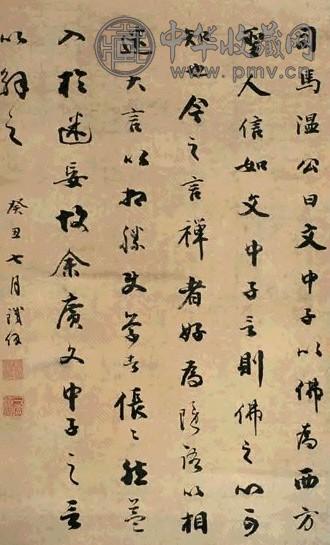 中华收藏网
www.pmv.cn
司馬溫公曰文中子以佛為西方
聖人信如文中子言則佛之心可
知也今之言禪者好為隱語以相
迷大言以相勝使學者倀〻然益
入於迷妄故余廣文中子之言
以解之
癸丑七月鐵保